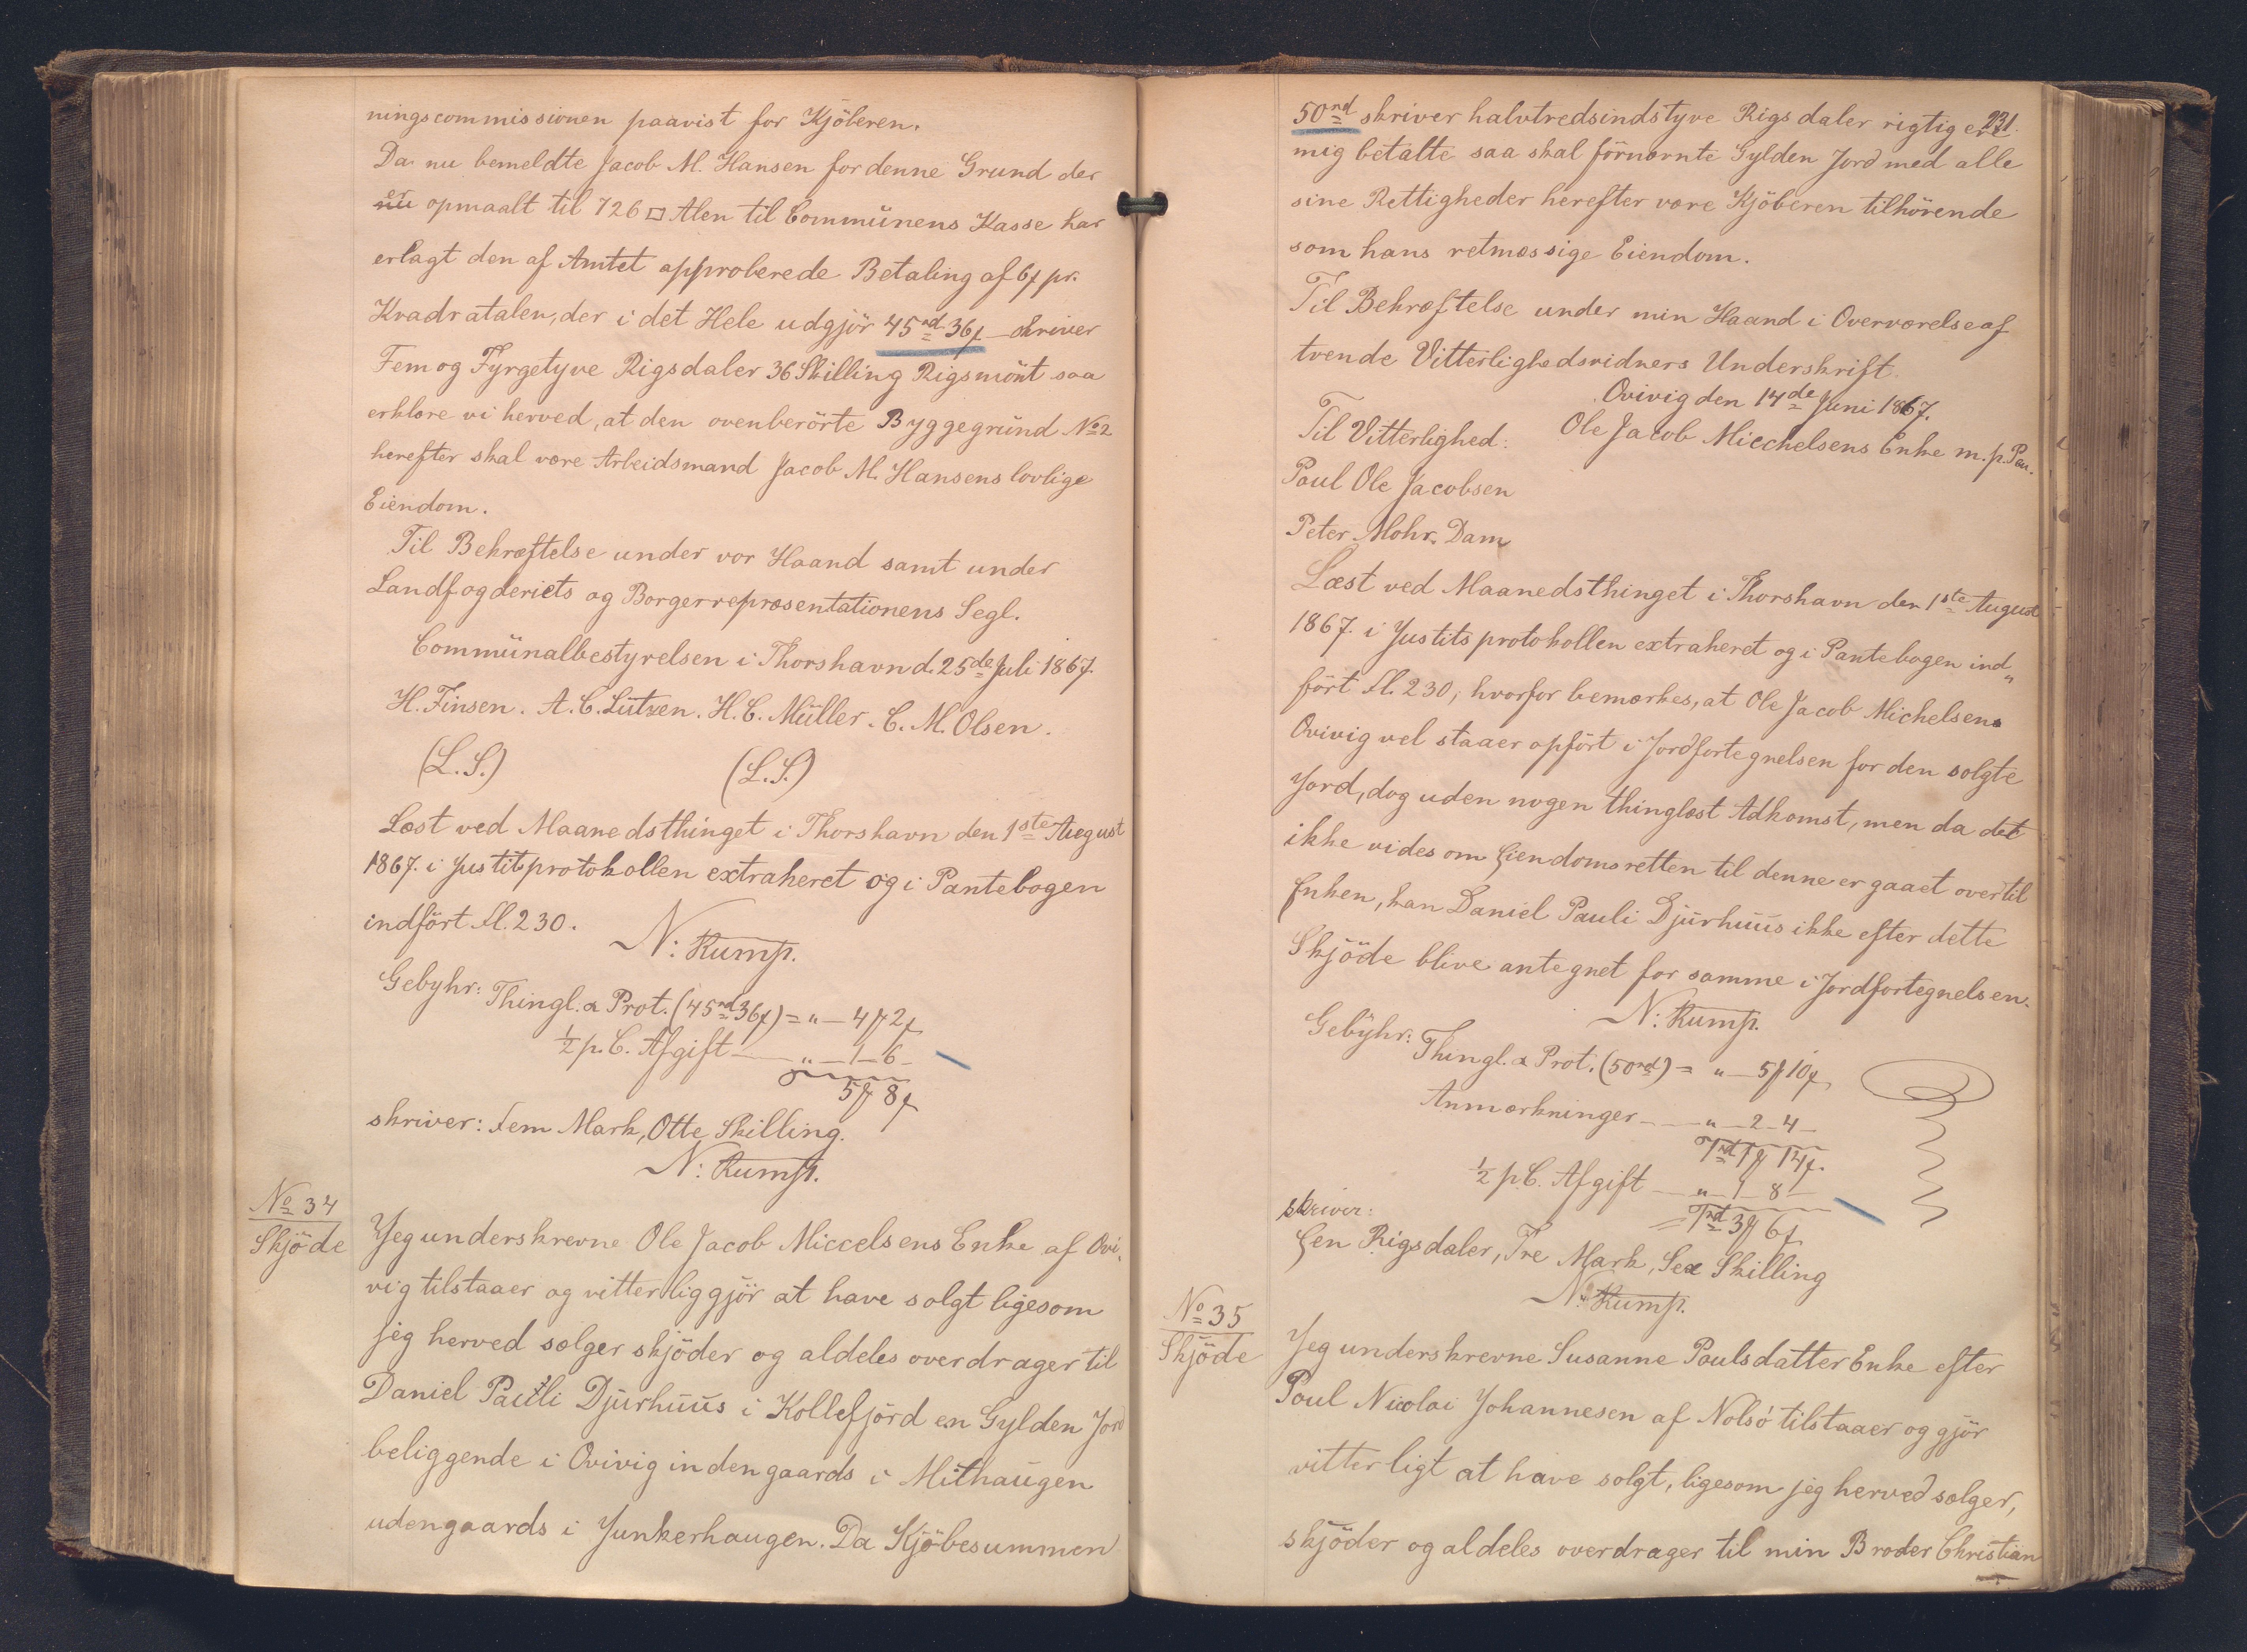 ningscommissionen paavist for Kjöberen.
Da nu bemeldte Jacob M. Hansen for denne Grund der
er opmaalt til 726 □ Alen til Commünens Kasse har
erlagt den af Amtet approberede Betaling af 6 ſ pr.
Kvadratalen, der i det Hele udgjör 45 rd 36 ſ skriver
Fem og Fyrgetyve Rigsdaler 36 Skilling Rigsmönt saa
erklære vi herved, at den ovenberörte Byggegründ No 2
herefter skal være Arbeidsmand Jacob M. Hansens lovlige
Eiendom.
Til Bekræftelse under vor Haand samt under
Landfogderiets og Borgerrepræsentationens Segl.
Commünalbestyrelsen i Thorshavn d. 25de Juli 1867.
H. Finsen. A. C. Lützen. H. C. Müller. C. M. Olsen.
(L. S.) (L. S.)
Læst ved Maanedsthinget i Thorshavn den 1ste August
1867. i Justitsprotokollen extraheret og i Pantebogen
indfört fl. 230.
N: Rump.
Gebyhr: Thingl. & Prot. (45 rd 36 ſ) = „ — 4 ℳ 2 ſ
½ p. C. Afgift — „ — 1 — 6 —
5 ℳ 8 ſ
skriver: Fem Mark, Otte Skilling.
N: Rump.
No 34
Skjöde
Jeg underskrevne Ole Jacob Miccelsens Enke af Ovi-
vig tilstaaer og vitterliggjör at have solgt ligesom
jeg herved sælger skjöder og aldeles overdrager til
Daniel Pauli Djürhüüs i Kollefjörd en Gylden Jord
beliggende i Ovivig indengaards i Mithaügen
udengaards i Junkerhaugen. Da Kjöbesummen
231.
50 rd skriver halvtredsindstyve Rigsdaler rigtig ere
mig betalte saa skal förnævnte Gylden Jord med alle
sine Rettigheder herefter være Kjöberen tilhörende
som hans retmæssige Eiendom.
Til Bekræftelse under min Haand i Overværelse af
tvende Vitterlighedsvidners Underskrift.
Ovivig den 14de Juni 1867.
Til Vitterlighed: Ole Jacob Micchelsens Enke m. p. Pen.
Poul Ole Jacobsen
Peter Mohr. Dam
Læst ved Maanedsthinget i Thorshavn den 1ste August
1867. i Justitsprotokollen extraheret og i Pantebogen ind„
fört fl. 230, hvorfor bemærkes, at Ole Jacob Michelsens
Ovivig vel staaer opfört i Jordfortegnelsen for den solgte
Jord, dog uden nogen thinglæst Adkomst, men da det
ikke vides om Eiendomsretten til denne er gaaet over til
Enken, kan Daniel Pauli Djürhüüs ikke efter dette
Skjöde blive antegnet for samme i Jordfortegnelsen.
N: Rump.
Gebyhr: Thingl. & Prot. (50 rd) = „ — 5 ℳ 10 ſ
Anmærkninger — „ — 2 — 4 —
1 rd 1 ℳ 14 ſ.
½ p. C. Afgift — „ — 1 — 8 —
= 1 rd 3 ℳ 6 ſ
skriver:
Een Rigsdaler, Tre Mark, Sex Skilling
N: Rump.
No 35
Skjöde
Jeg underskrevne Susanne Poulsdatter Enke efter
Poul Nicolai Johannesen af Nolsö tilstaaer og gjör
vitterligt at have solgt, ligesom jeg herved sælger,
skjöder og aldeles overdrager til min Broder Christian